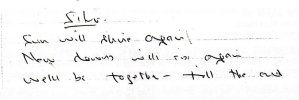 Sun will shine again
New dawns will rise again
We'll be together - till the end